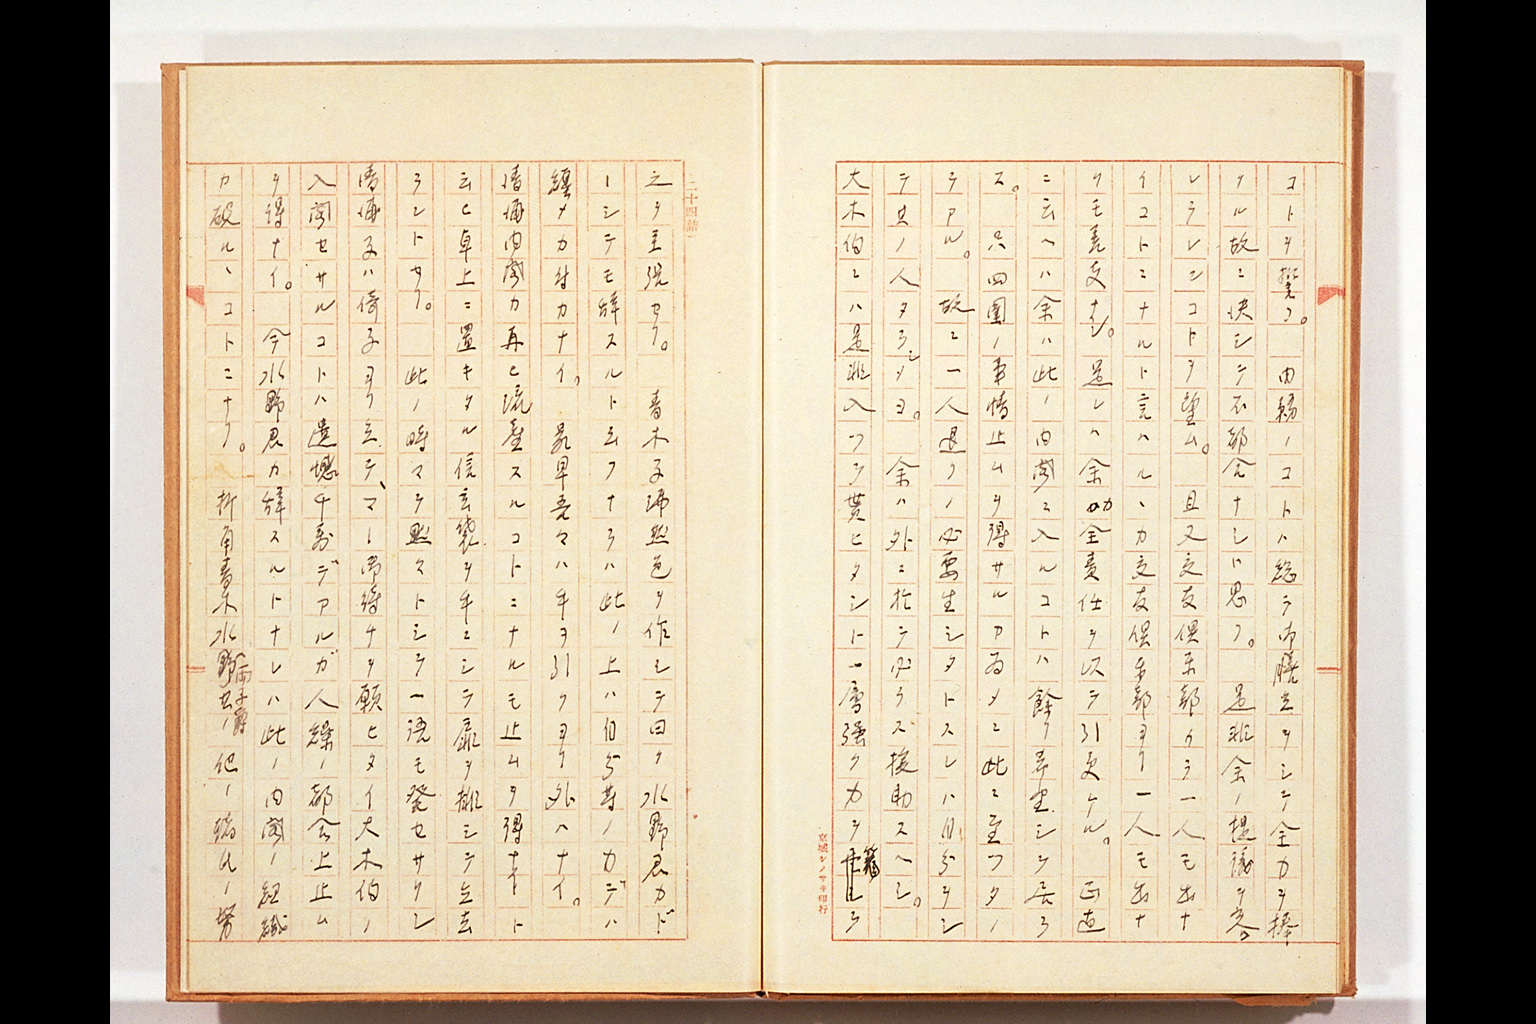 コトヲ誓フ。 内務ノコトハ総テ御膳立ヲシテ全力ヲ捧
クル故ニ決シテ不都合ナシト思フ。 是非余ノ提議ヲ容
レラレンコトヲ望ム。 且又交友倶楽部カラ一人モ出ナ
イコトニナルト言ハルヽカ交友倶楽部ヨリ一人モ出ナ
クモ差支ナシ。是レハ余カ全責任ヲ以テ引受ケル。 正直
ニ云ヘハ余ハ此ノ内閣ニ入ルコトハ餘リ希望シテ居ラ
ス。 只四囲ノ事情止ムヲ得サルカ為メニ此ニ至ツタノ
テアル。 故ニ一人退クノ必要生シタトスレハ自分ヲシ
テ其ノ人タラシメヨ。 余ハ外ニ於テ必ラズ援助スヘシ。
大木伯ニハ是非入ツテ貰ヒタシト一層強ク力ヲ籠シテ
之ヲ主張セリ。 青木子沛然色ヲ作シテ曰ク水野君カド
ーシテモ辞スルト云フナラハ此ノ上ハ自分等ノ力デハ
纏メカ付カナイ。最早吾々ハ手ヲ引クヨリ外ハナイ。
清浦内閣カ再ヒ流産スルコトニナルモ止ムヲ得ナイト
云ヒ卓上ニ置キタル信玄袋ヲ手ニシテ扉ヲ排シテ立去
ラントセリ。 此ノ時マテ黙々トシテ一語モ発セサリシ
清浦子ハ倚子ヨリ立テ、マー御待チヲ願ヒタイ大木伯ノ
入閣セサルコトハ遺憾千万デアルガ人繰ノ都合上止ム
ヲ得ナイ。 今水野君カ辞スルトナレハ此ノ内閣ノ組織
カ破ルヽコトニナリ。 折角青木水野(両子爵)其ノ他ノ諸氏ノ努
二十四詰
京城シノサキ印行